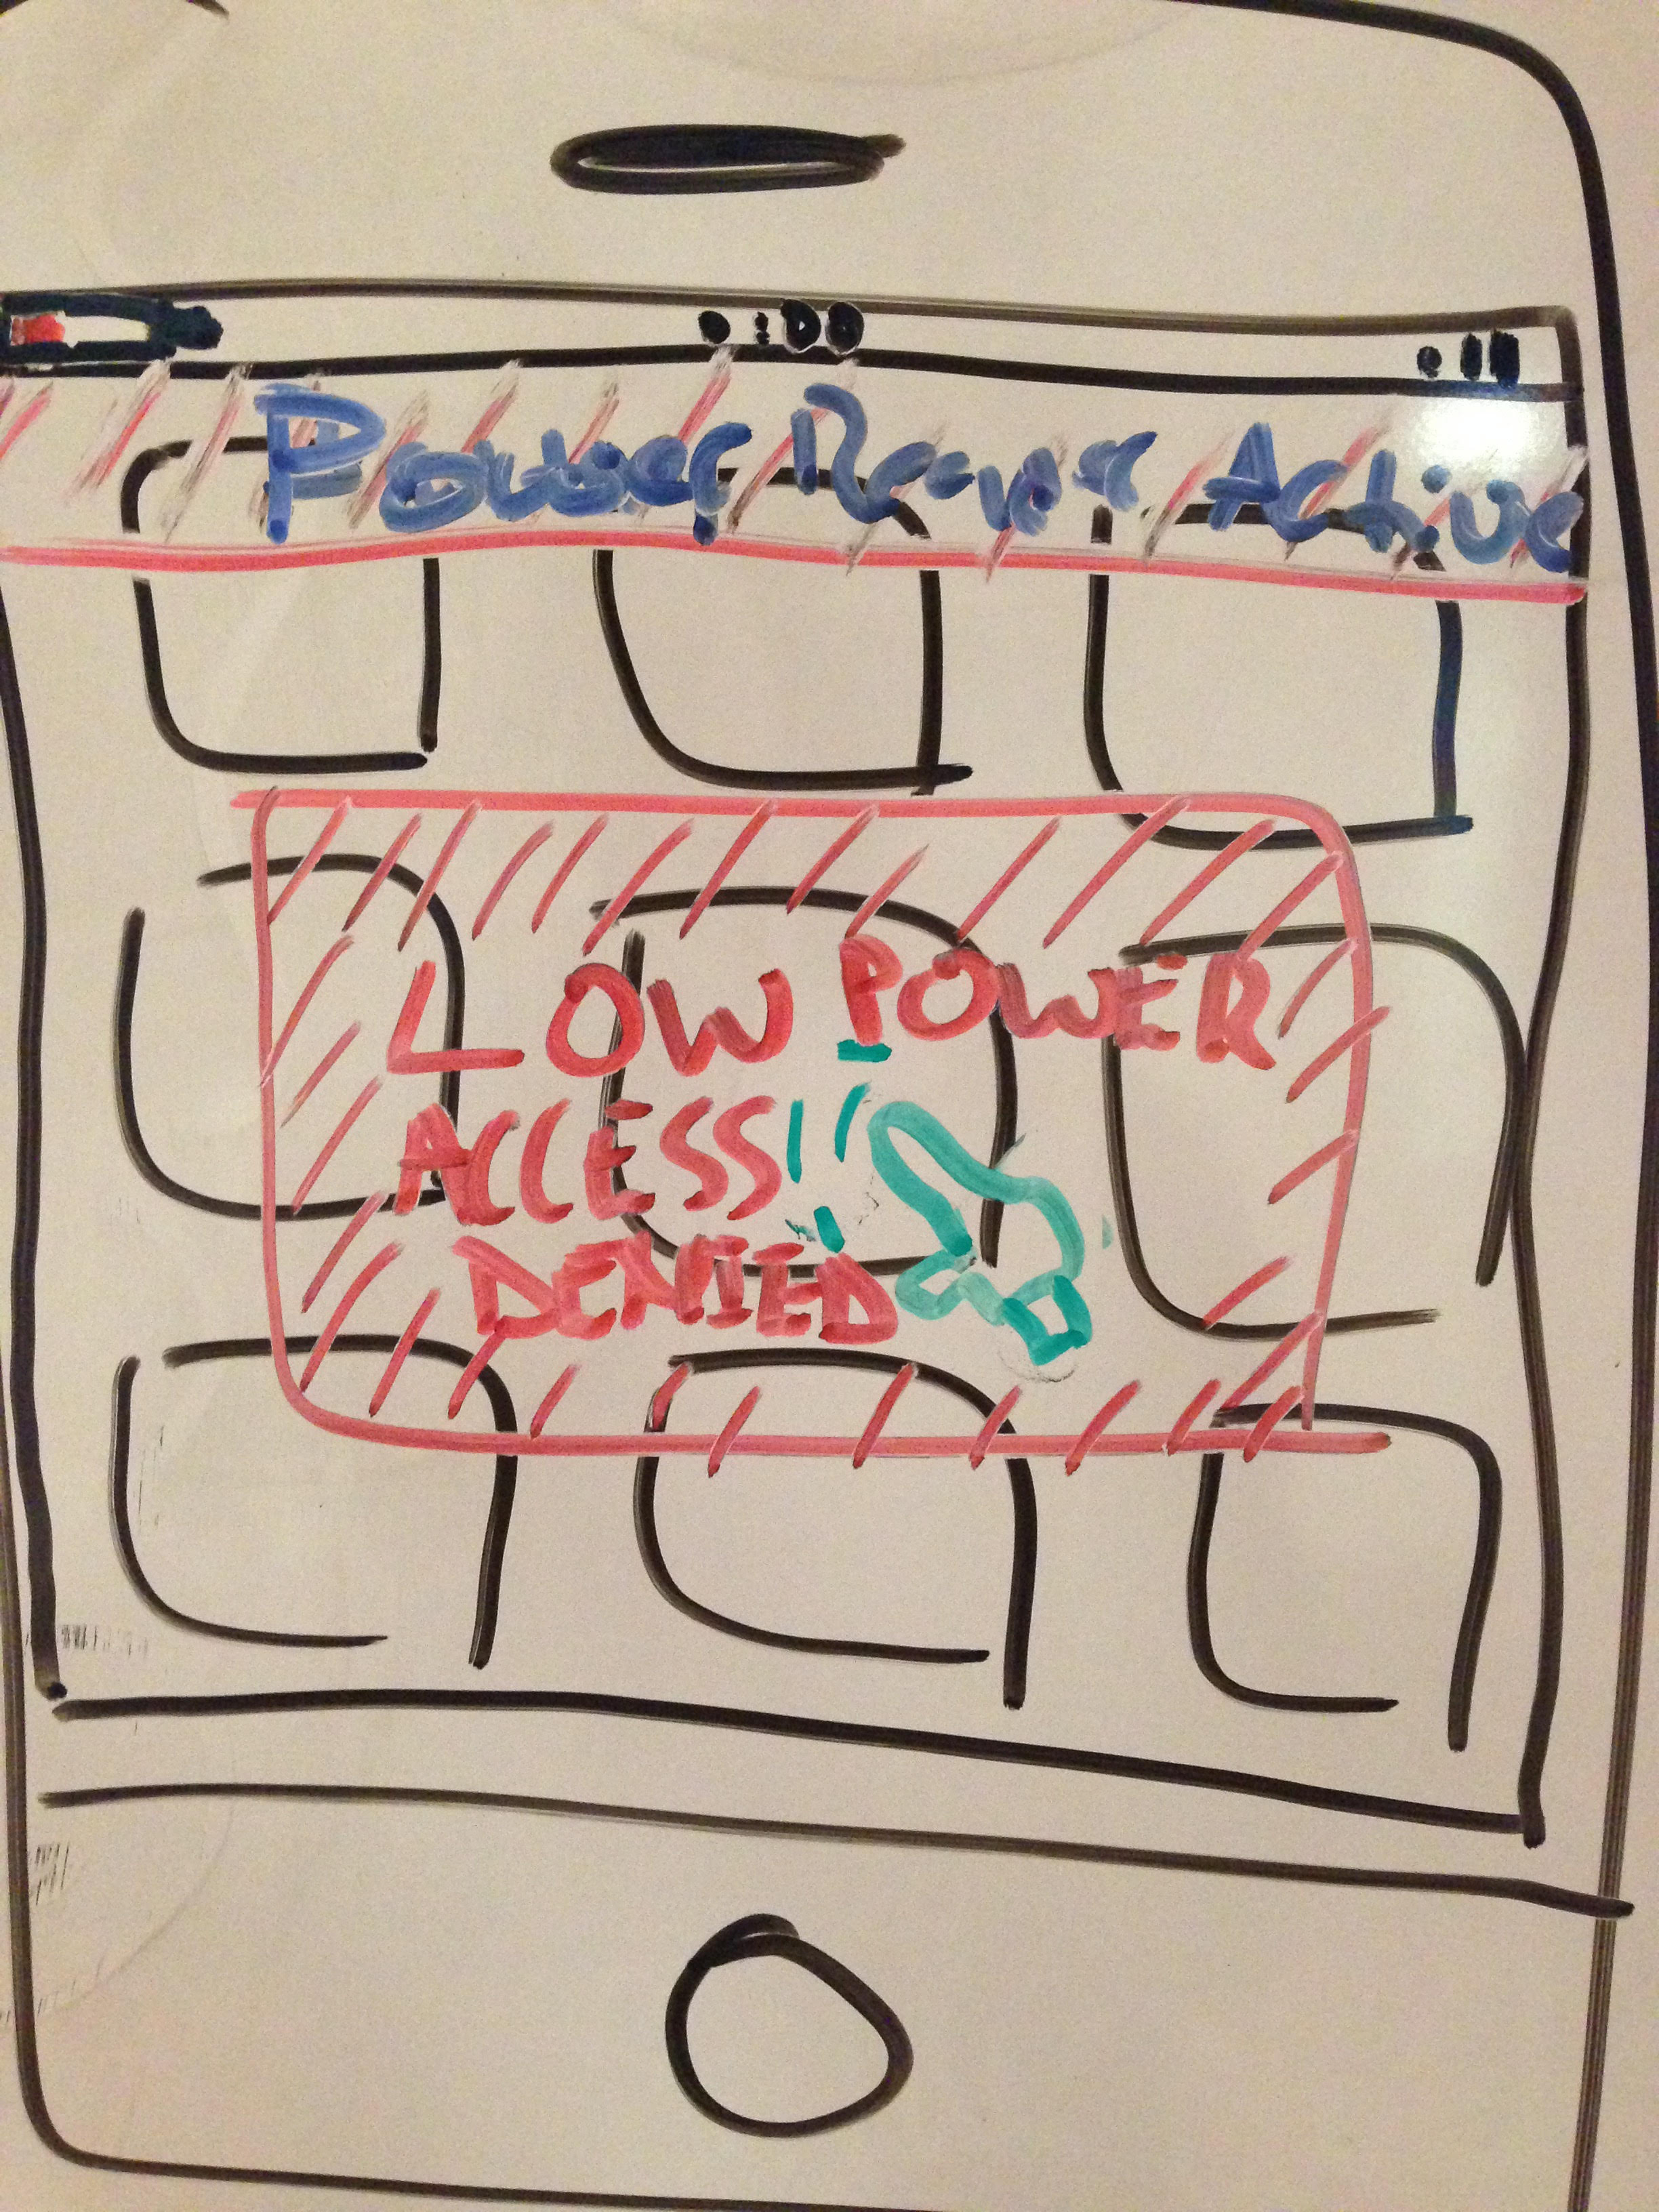 Power Active
LOW POWER
ACCESS
DENIED